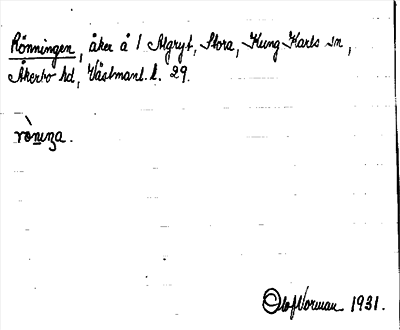 Rönningen, åker å 1 Algryt, Stora, Kung Karls sn,
Åkerbo hd, Västmanl. l. 29.
rònıŋa.
Olof Norman 1931.